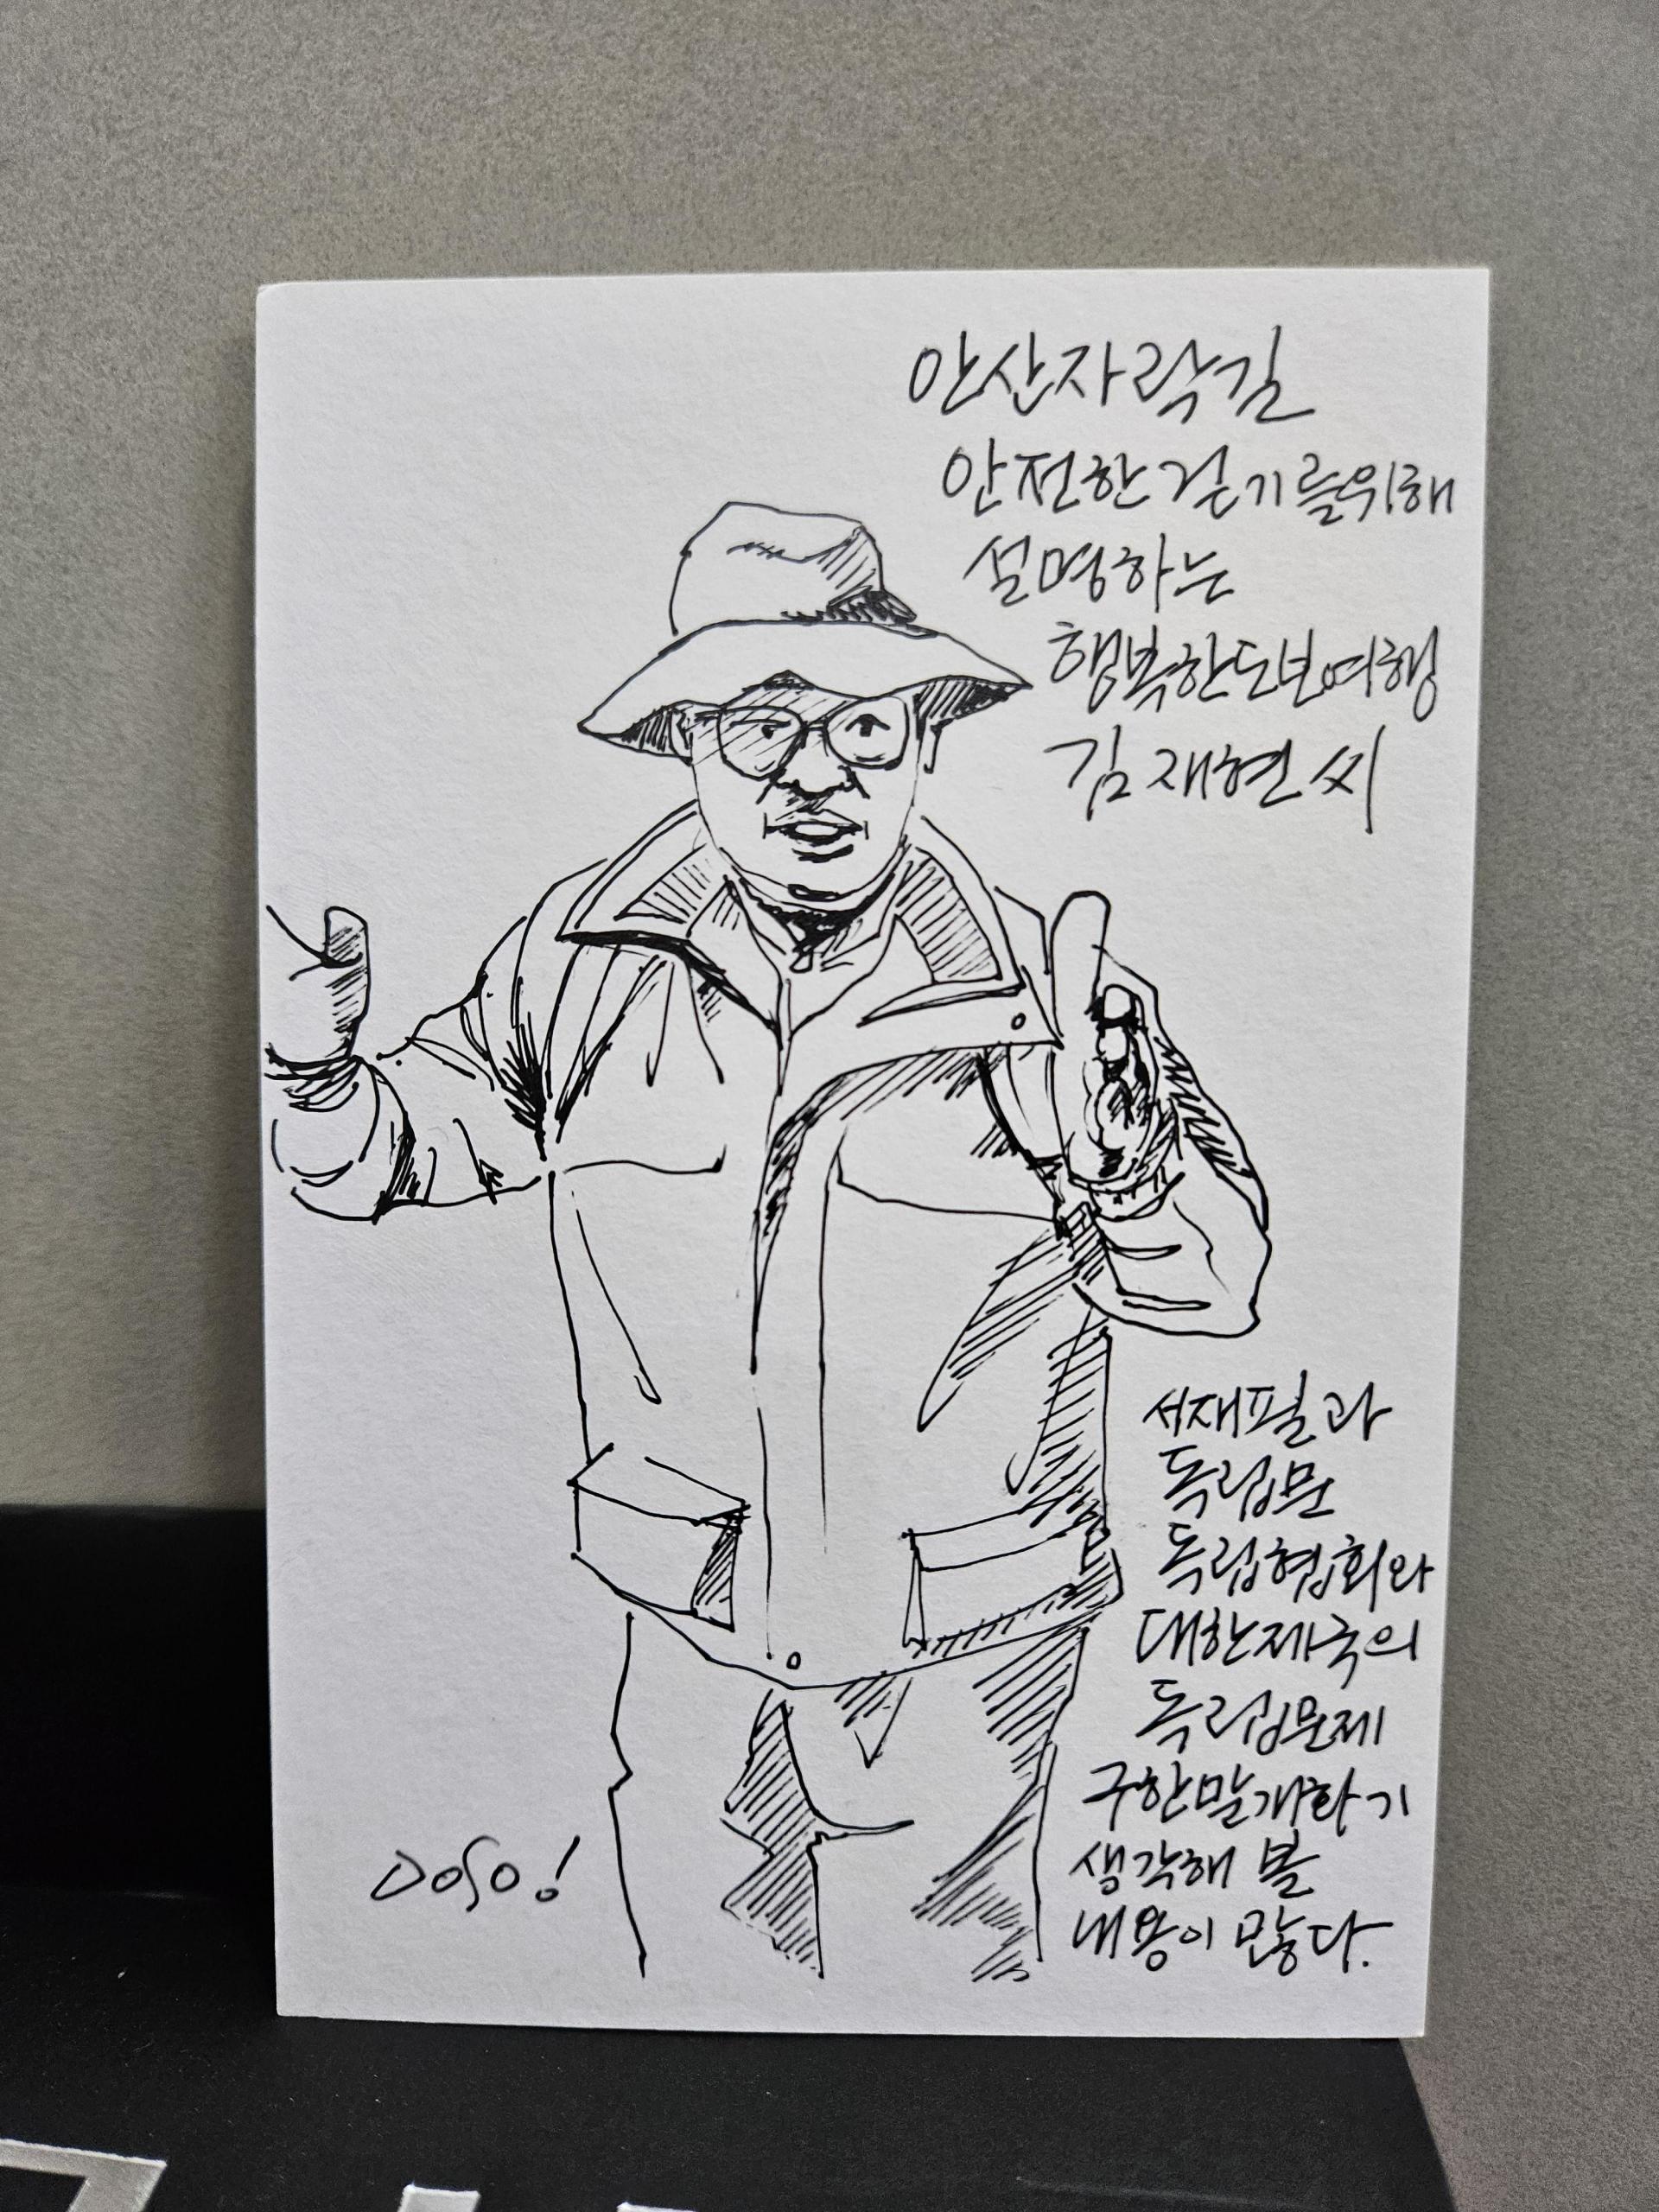 안산자락길
안전한 걷기를위해
설명하는
행복한도보여행
김재현씨
서재필과
독립문
독립협회와
대한제국의
독립문제
구한말개화기
생각해 볼
내용이 많다.
DOSO!